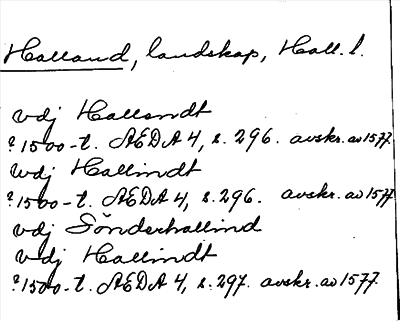 Halland, landskap, Hall. l.
vdj Hallandt
?1500-t. AEDA 4, s. 296. avskr. av 1577.
wdj Hallindt
?1500-t. AEDA 4, s. 296. avskr. av 1577
vdj Sönderhallind
vdj Hallindt
?1500-t. AEDA 4, s. 297. avskr. av 1577.